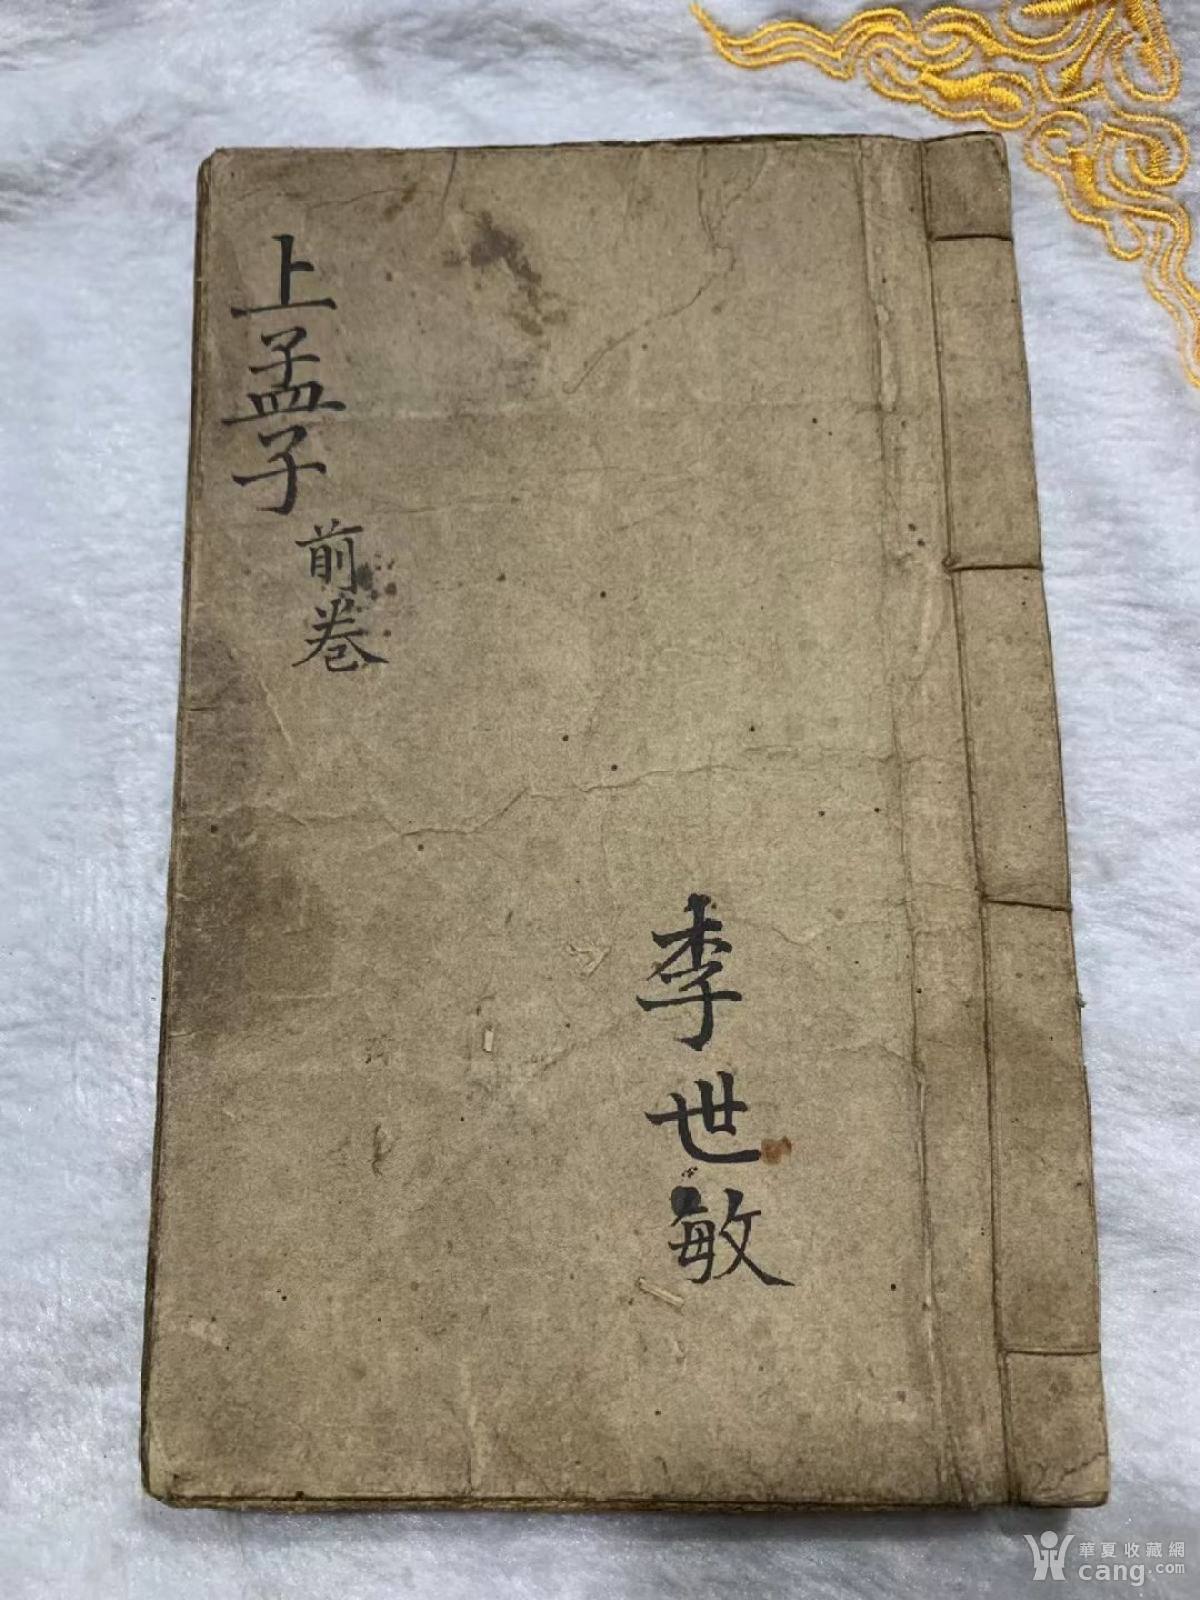 上孟子
前卷
李世敏
華夏收藏網
cang.com